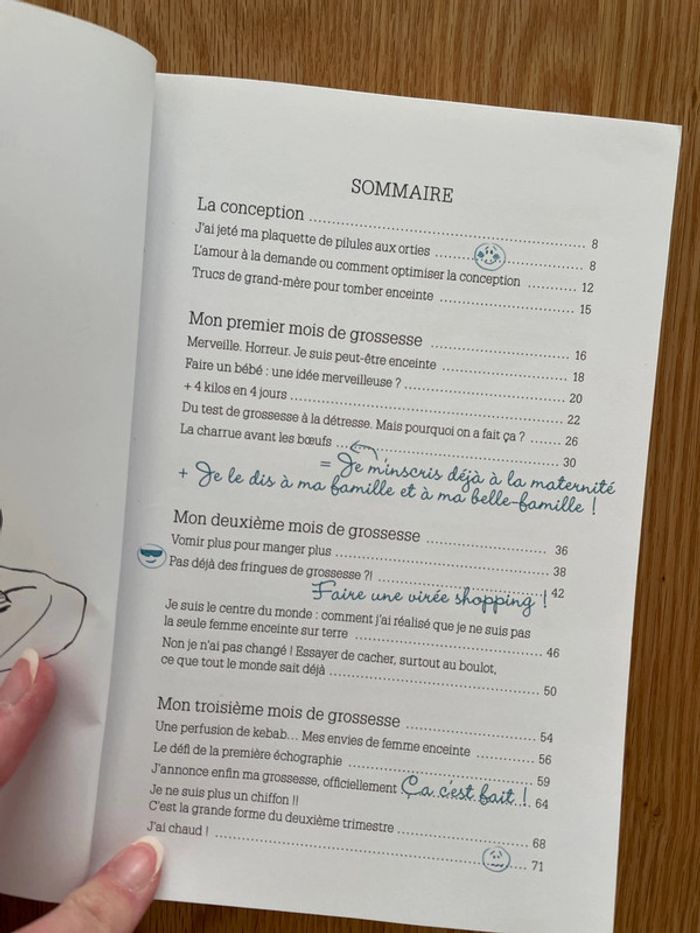 SOMMAIRE
La conception ........................................ 8
J'ai jeté ma plaquette de pilules aux orties ........................ 8
L'amour à la demande ou comment optimiser la conception .......... 12
Trucs de grand-mère pour tomber enceinte ........................ 15
Mon premier mois de grossesse ........................ 16
Merveille. Horreur. Je suis peut-être enceinte ........................ 18
Faire un bébé : une idée merveilleuse ? ........................ 20
+ 4 kilos en 4 jours ........................ 22
Du test de grossesse à la détresse. Mais pourquoi on a fait ça ? ....... 26
La charrue avant les bœufs ........................ 30
= Je m'inscris déjà à la maternité
+ Je le dis à ma famille et à ma belle-famille !
Mon deuxième mois de grossesse ........................ 36
Vomir plus pour manger plus ........................ 38
Pas déjà des fringues de grossesse ?! ........................ 42
Faire une virée shopping !
Je suis le centre du monde : comment j'ai réalisé que je ne suis pas
la seule femme enceinte sur terre ........................ 46
Non je n'ai pas changé ! Essayer de cacher, surtout au boulot,
ce que tout le monde sait déjà ........................ 50
Mon troisième mois de grossesse ........................ 54
Une perfusion de kebab... Mes envies de femme enceinte .......... 56
Le défi de la première échographie ........................ 59
J'annonce enfin ma grossesse, officiellement Ça c'est fait ! 64
Je ne suis plus un chiffon !!
C'est la grande forme du deuxième trimestre ........................ 68
J'ai chaud ! ........................ 71